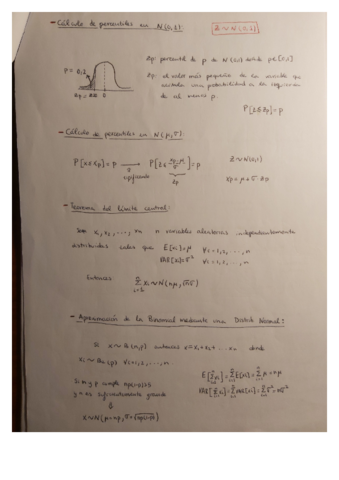 - Cálculo de percentiles en N(0,1): Z ~ N(0,1)
Zp: percentil de p de N(0,1) donde p∈(0,1)
Zp: el valor más pequeño de la variable que
acumula una probabilidad a su izquierda
de al menos p.
P[Z≤Zp]=p
- Cálculo de percentiles en N(μ,σ):
P[X≤Xp]=p → P[Z≤ (Xp-μ)/σ]=p Z~N(0,1)
tipificando Zp Xp=μ+σ·Zp
- Teorema del límite central:
Sean X1, X2, ..., Xn n variables aleatorias independientemente
distribuidas tales que E[Xi]=μ ∀i=1,2,...,n
VAR[Xi]=σ² ∀i=1,2,...,n
Entonces Σ Xi ~ N(nμ, √n σ)
- Aproximación de la Binomial mediante una Distrib Normal:
Si X~B(n,p) entonces X=X1+X2+...Xn donde
Xi~Be(p) ∀i=1,2,...,n
Si n y p cumple np(1-p)>5
y n es suficientemente grande
⇓
X~N(μ=np, σ=√np(1-p))